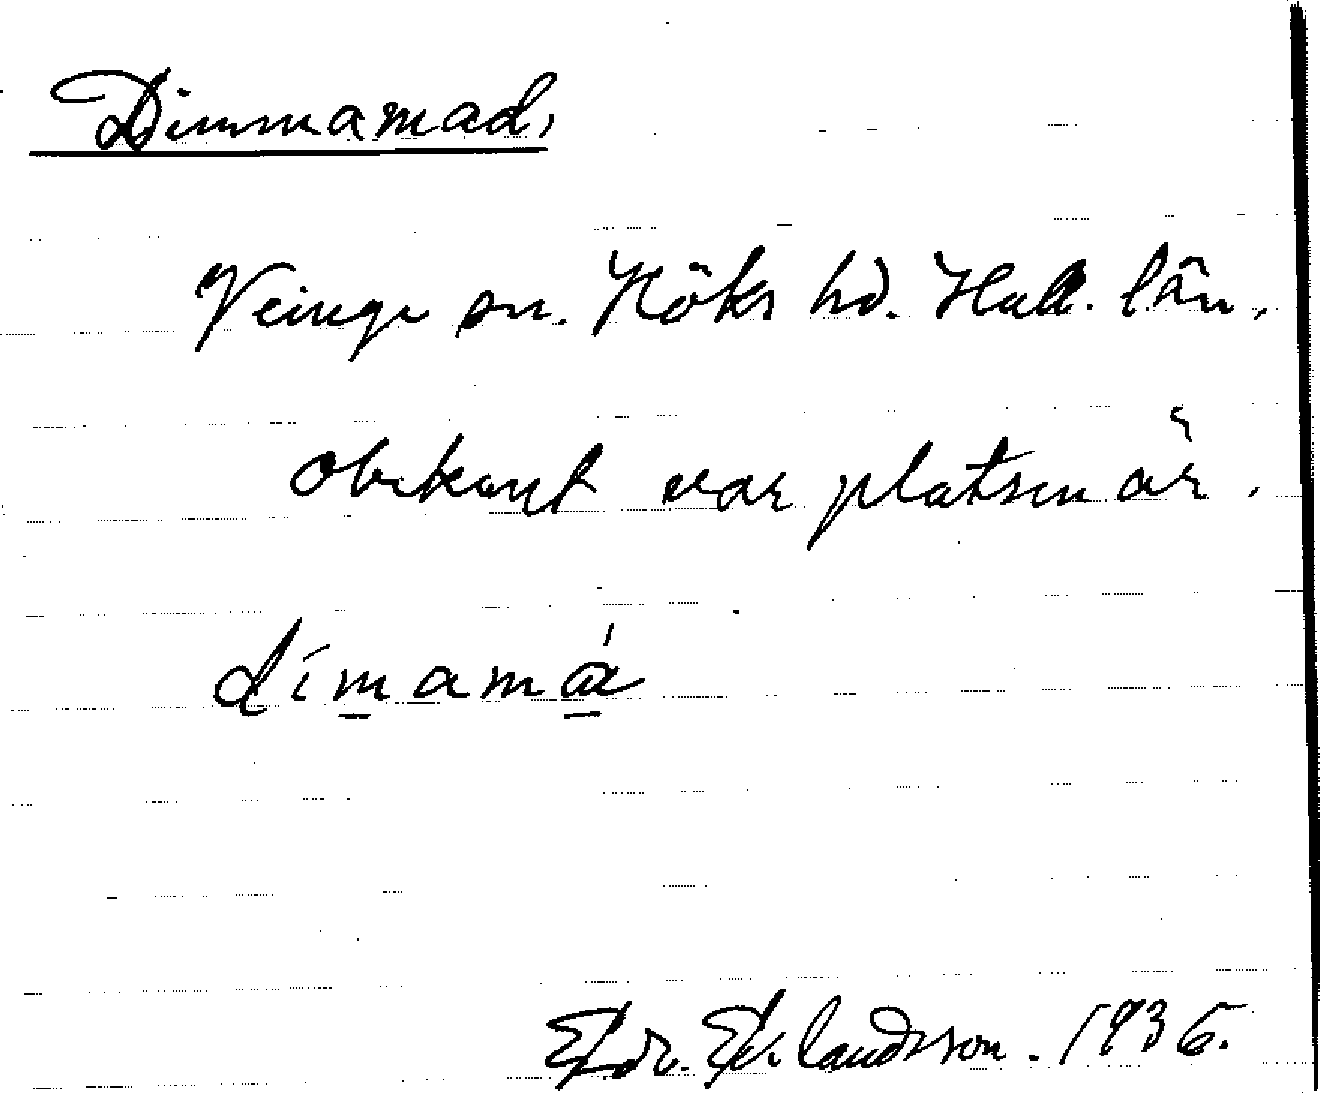 Dimmamad,
Veinge sn. Höks hd. Hall. län.
obekant var platsen är.
dímamá
Edv. Erlandsson. 1936.